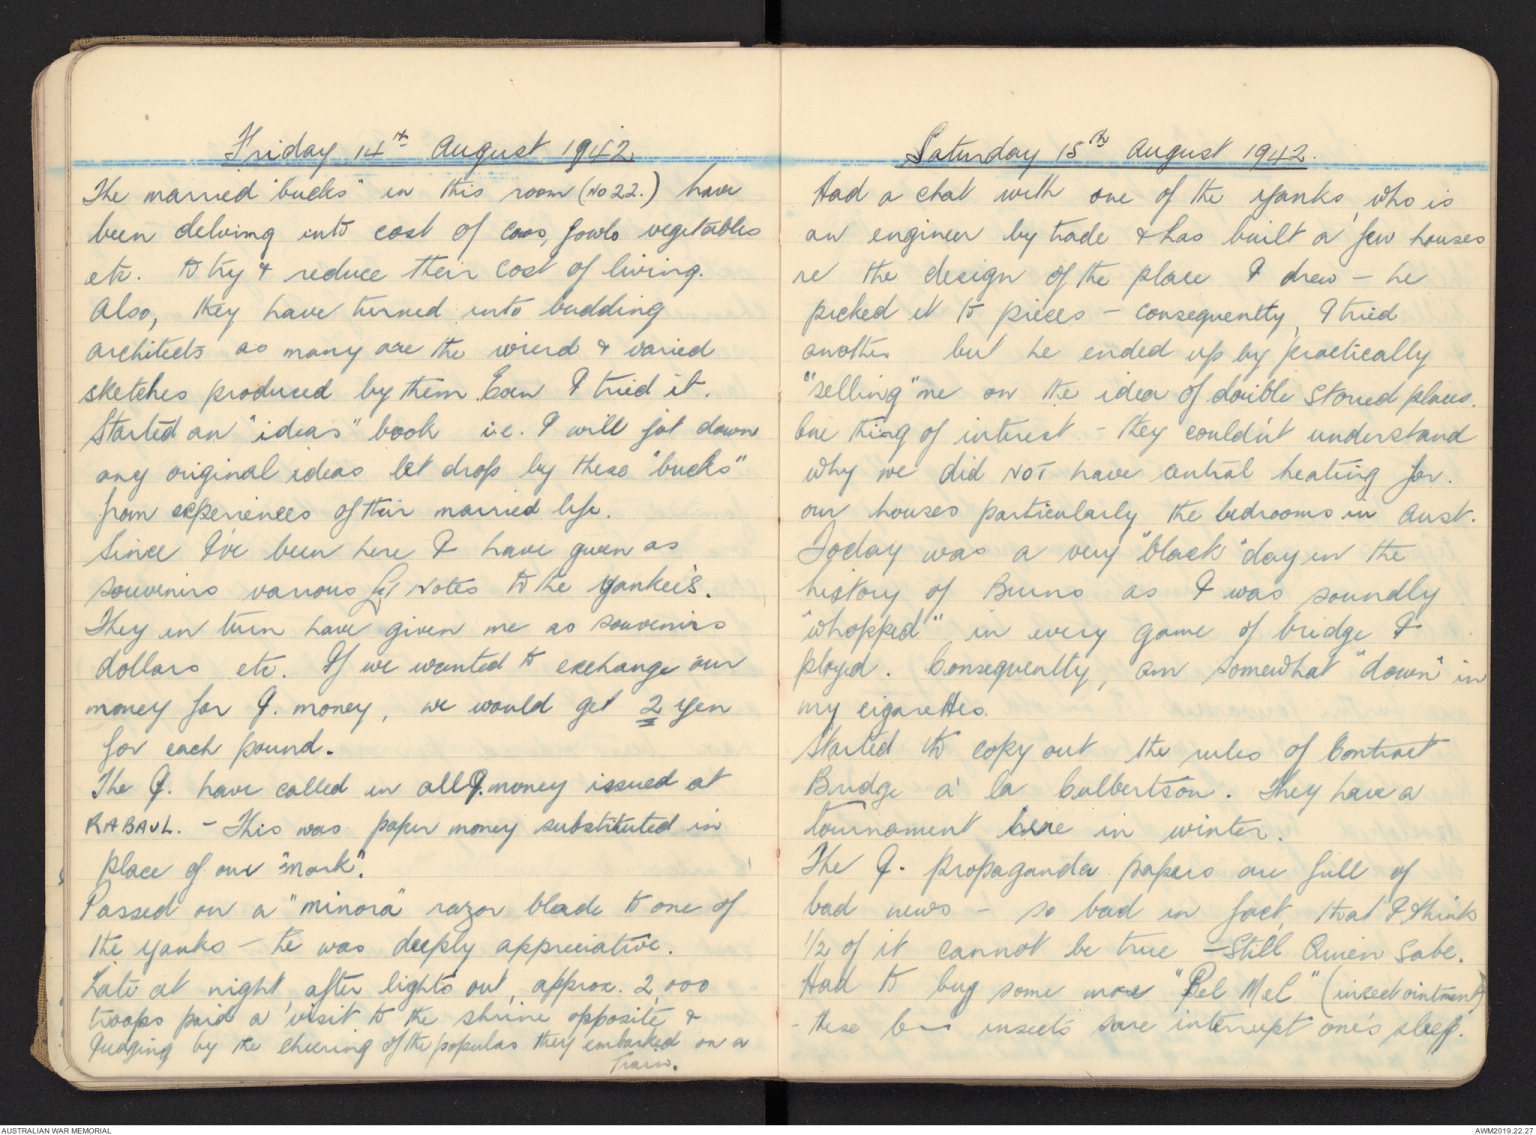 Friday 14th August 1942
The married "bucks" in this room (No 22.) have
been delving into cost of cows, fowls vegetables
etc. to try & reduce their cost of living.
Also, they have turned into budding
architects as many are the wierd & varied
sketches produced by them. Even I tried it.
Started an "ideas" book i.e. I will jot down
any original ideas let drop by these "bucks"
from experiences of their married life.
Since I've been here I have given as
souvenirs various £1 notes to the Yankee's.
They in turn have given me as souvenirs
dollars etc. If we wanted to exchange our
money for J. money, we would get 2 yen
for each pound.
The J. have called in all J. money issued at
RABAUL. - This was paper money substituted in
place of our "mark".
Passed on a "minora" razor blade to one of
the yanks - he was deeply appreciative.
Late at night, after lights out, approx. 2,000
troops paid a visit to the shrine opposite &
judging by the cheering of the populas they embarked on a
train.
Saturday 15th August 1942.
Had a chat with one of the Yanks, who is
an engineer by trade & has built a few houses
re the design of the place I drew - he
picked it to pieces - consequently, I tried
another but he ended up by practically
"selling" me on the idea of double storied places.
One thing of interest - they couldn't understand
why we did NOT have central heating for
our houses particularly the bedrooms in Aust.
Today was a very "black" day in the
history of Burns as I was soundly
"whopped" in every game of bridge I
played. Consequently, am somewhat "down" in
my cigarettes.
Started to copy out the rules of Contract
Bridge a' la Culbertson. They have a
tournament here in winter.
The J. propaganda papers are full of
bad news - so bad in fact, that I think
1/2 of it cannot be true - Still Quien Sabe.
Had to buy some more "Pel Mel" (insect ointment)
- these b-- insects sure interrupt one's sleep.
AUSTRALIAN WAR MEMORIAL
AWM2019.22.27